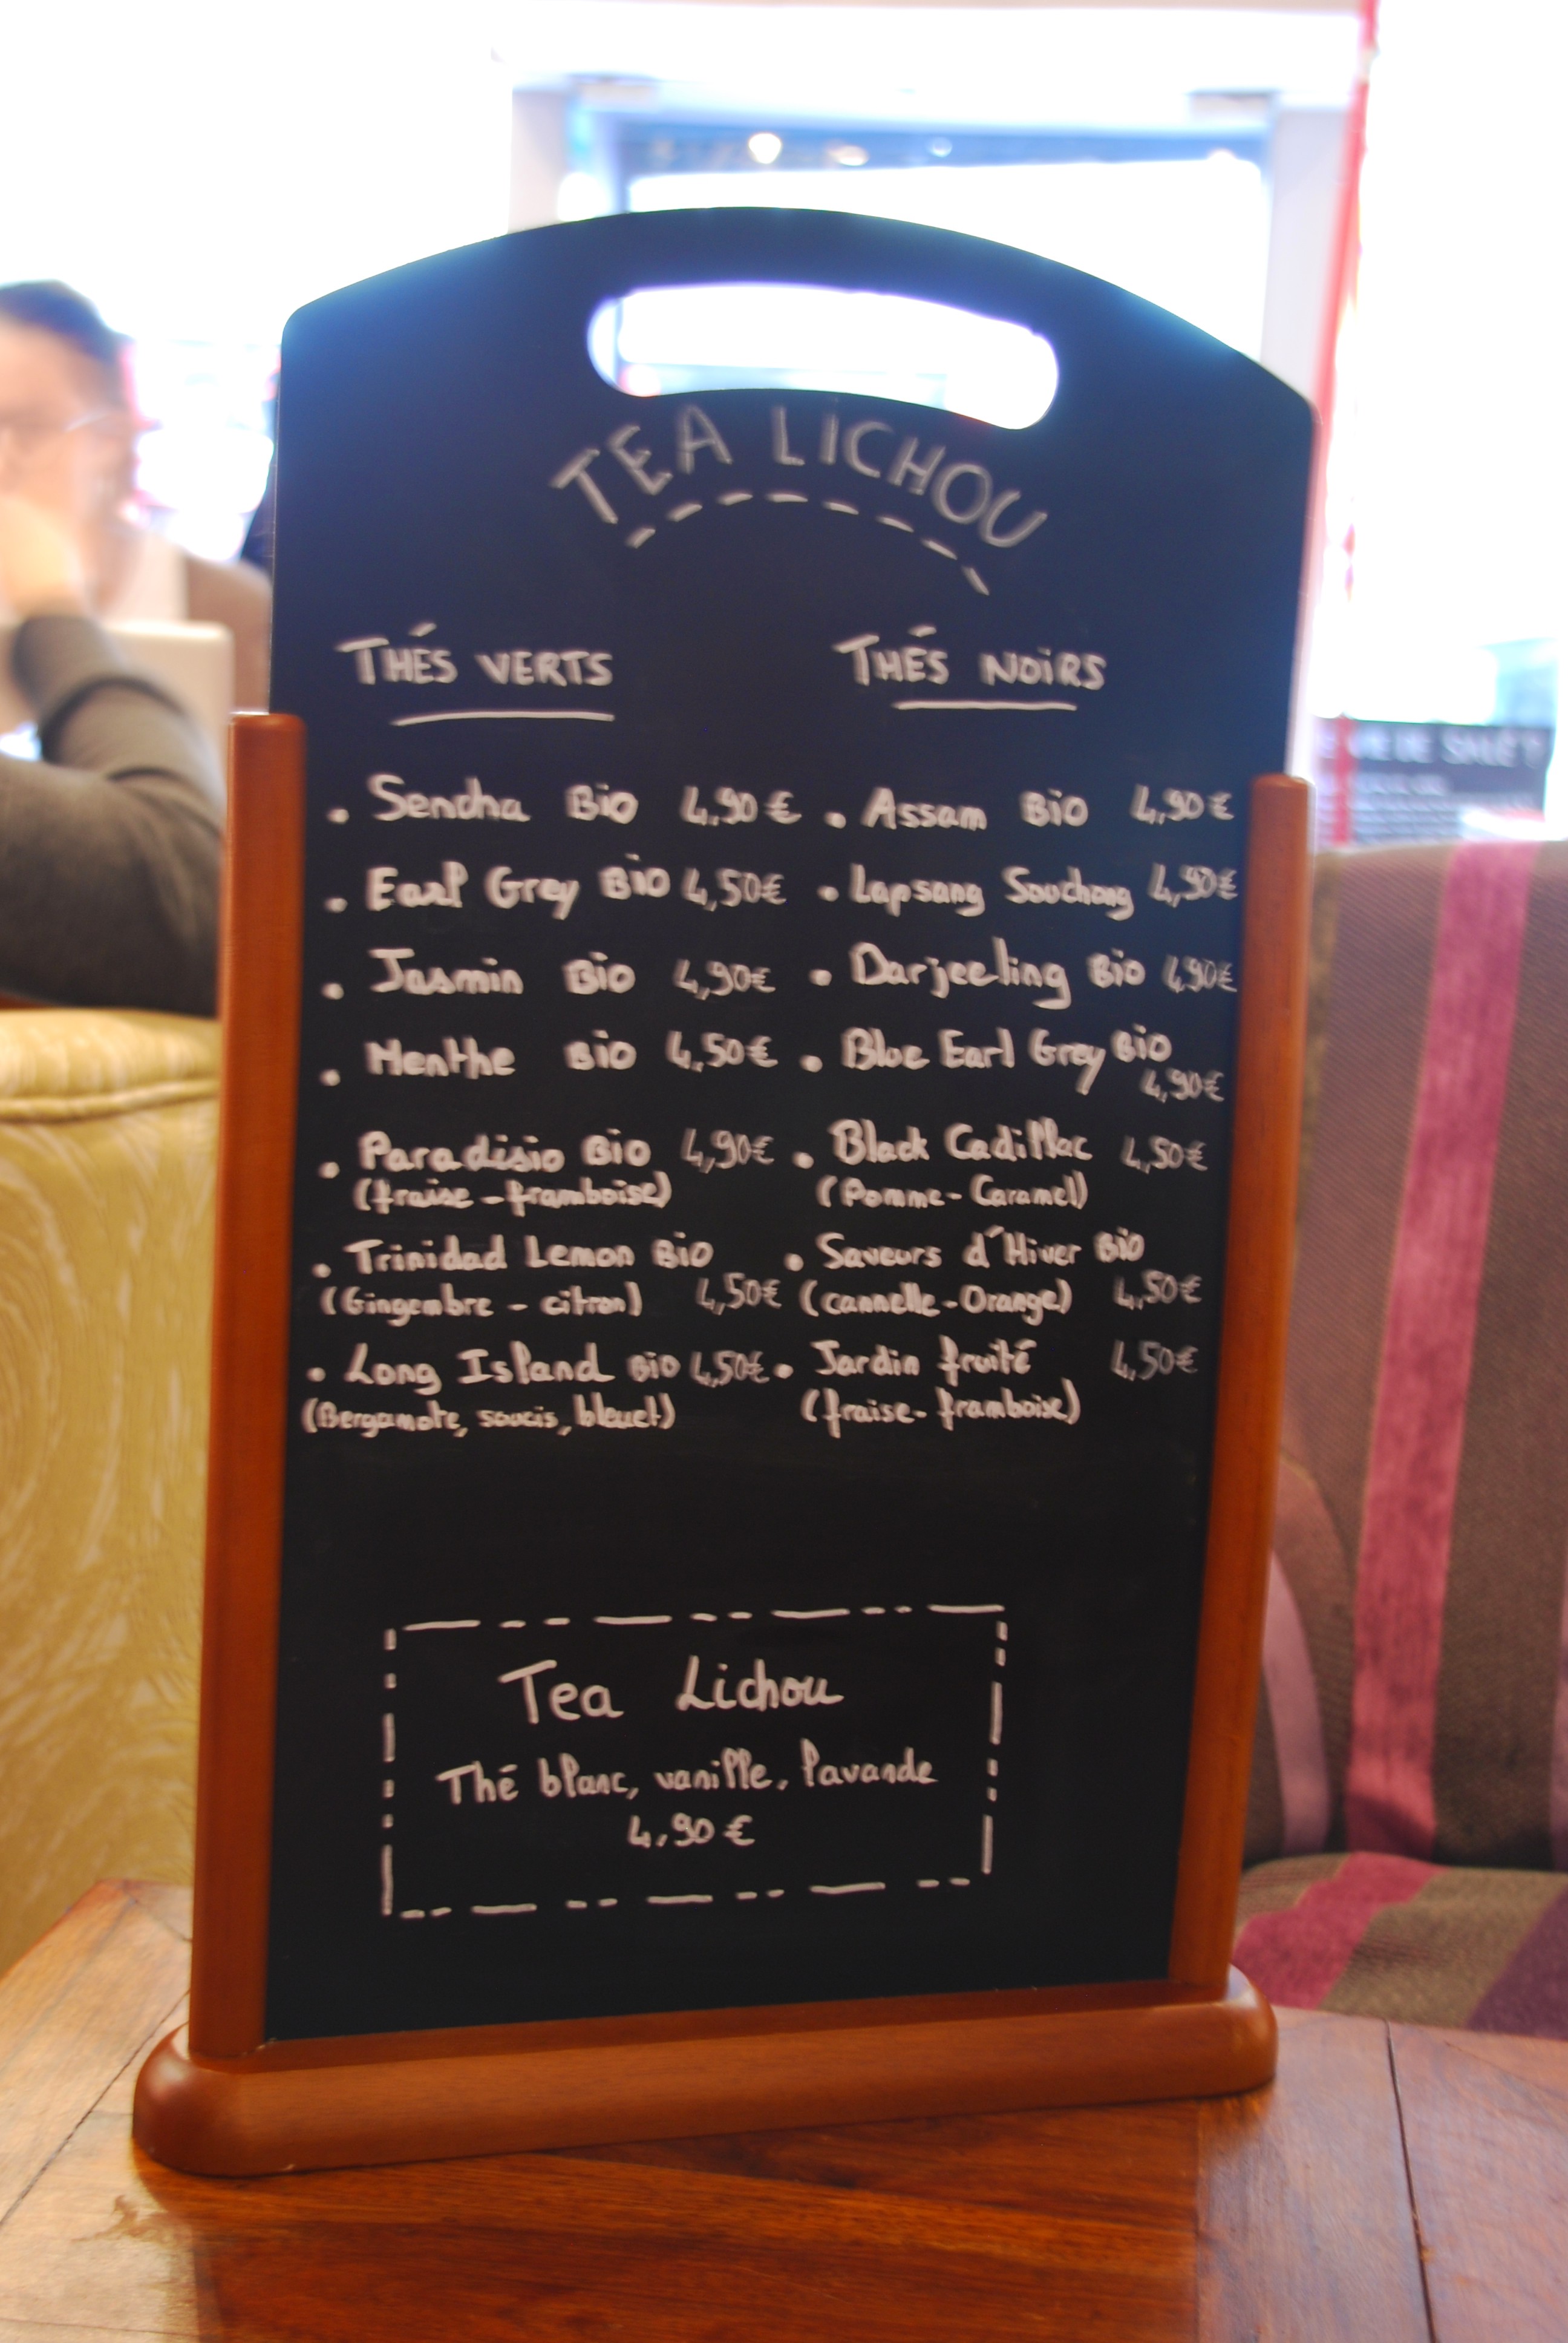 TEA LICHOU
THÉS VERTS
• Sencha Bio 4,90€
• Earl Grey Bio 4,50€
• Jasmin Bio 4,90€
• Menthe Bio 4,50€
• Paradisio Bio 4,90€
(fraise - framboise)
• Trinidad Lemon Bio
(Gingembre - citron) 4,50€
• Long Island Bio 4,50€
(Bergamote, soucis, bleuet)
THÉS NOIRS
• Assam Bio 4,90€
• Lapsang Souchong 4,50€
• Darjeeling Bio 4,90€
• Blue Earl Grey Bio
4,90€
• Black Cadillac 4,50€
(Pomme - Caramel)
• Saveurs d'Hiver Bio
(cannelle - Orange) 4,50€
• Jardin fruité 4,50€
(fraise - framboise)
Tea Lichou
Thé blanc, vanille, lavande
4,90 €
DE SALÉ ?